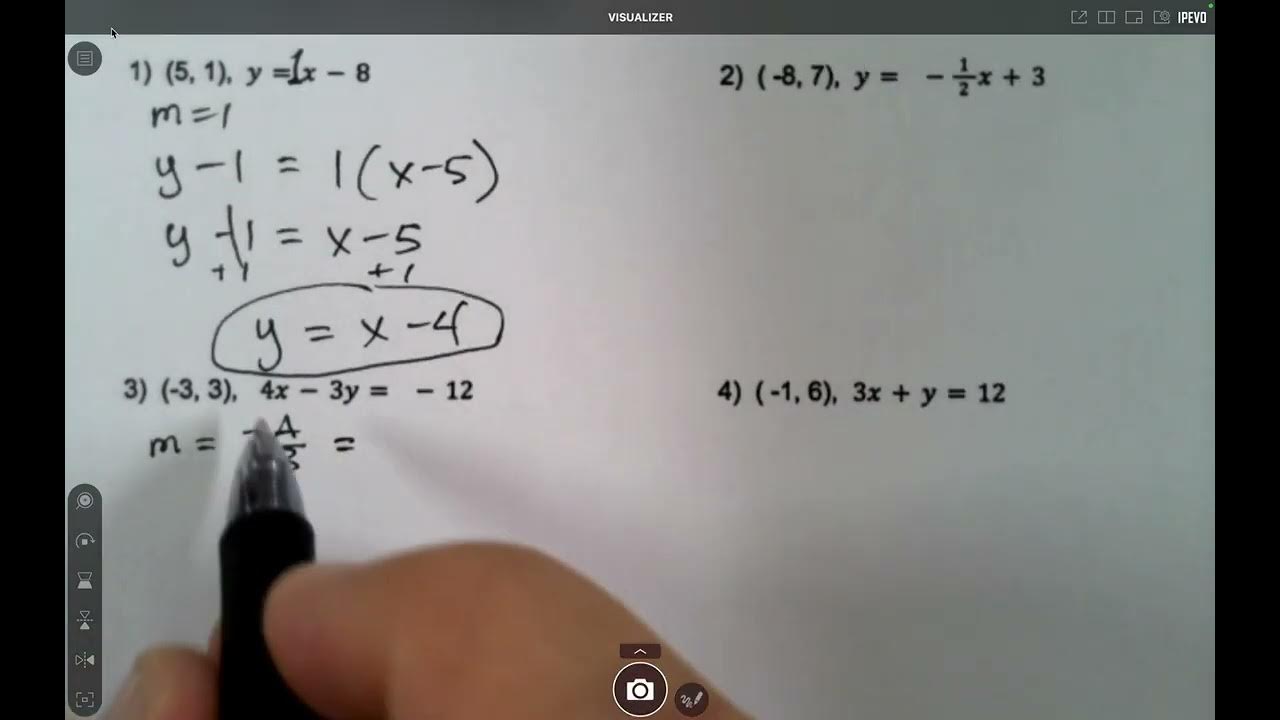 VISUALIZER
IPEVO
1) (5, 1), y =1x − 8
m = 1
y − 1 = 1(x−5)
y − 1 = x − 5
+1 +1
y = x − 4
2) (-8, 7), y = − 1/2 x + 3
3) (-3, 3), 4x − 3y = − 12
m = − 4/3 =
4) (-1, 6), 3x + y = 12